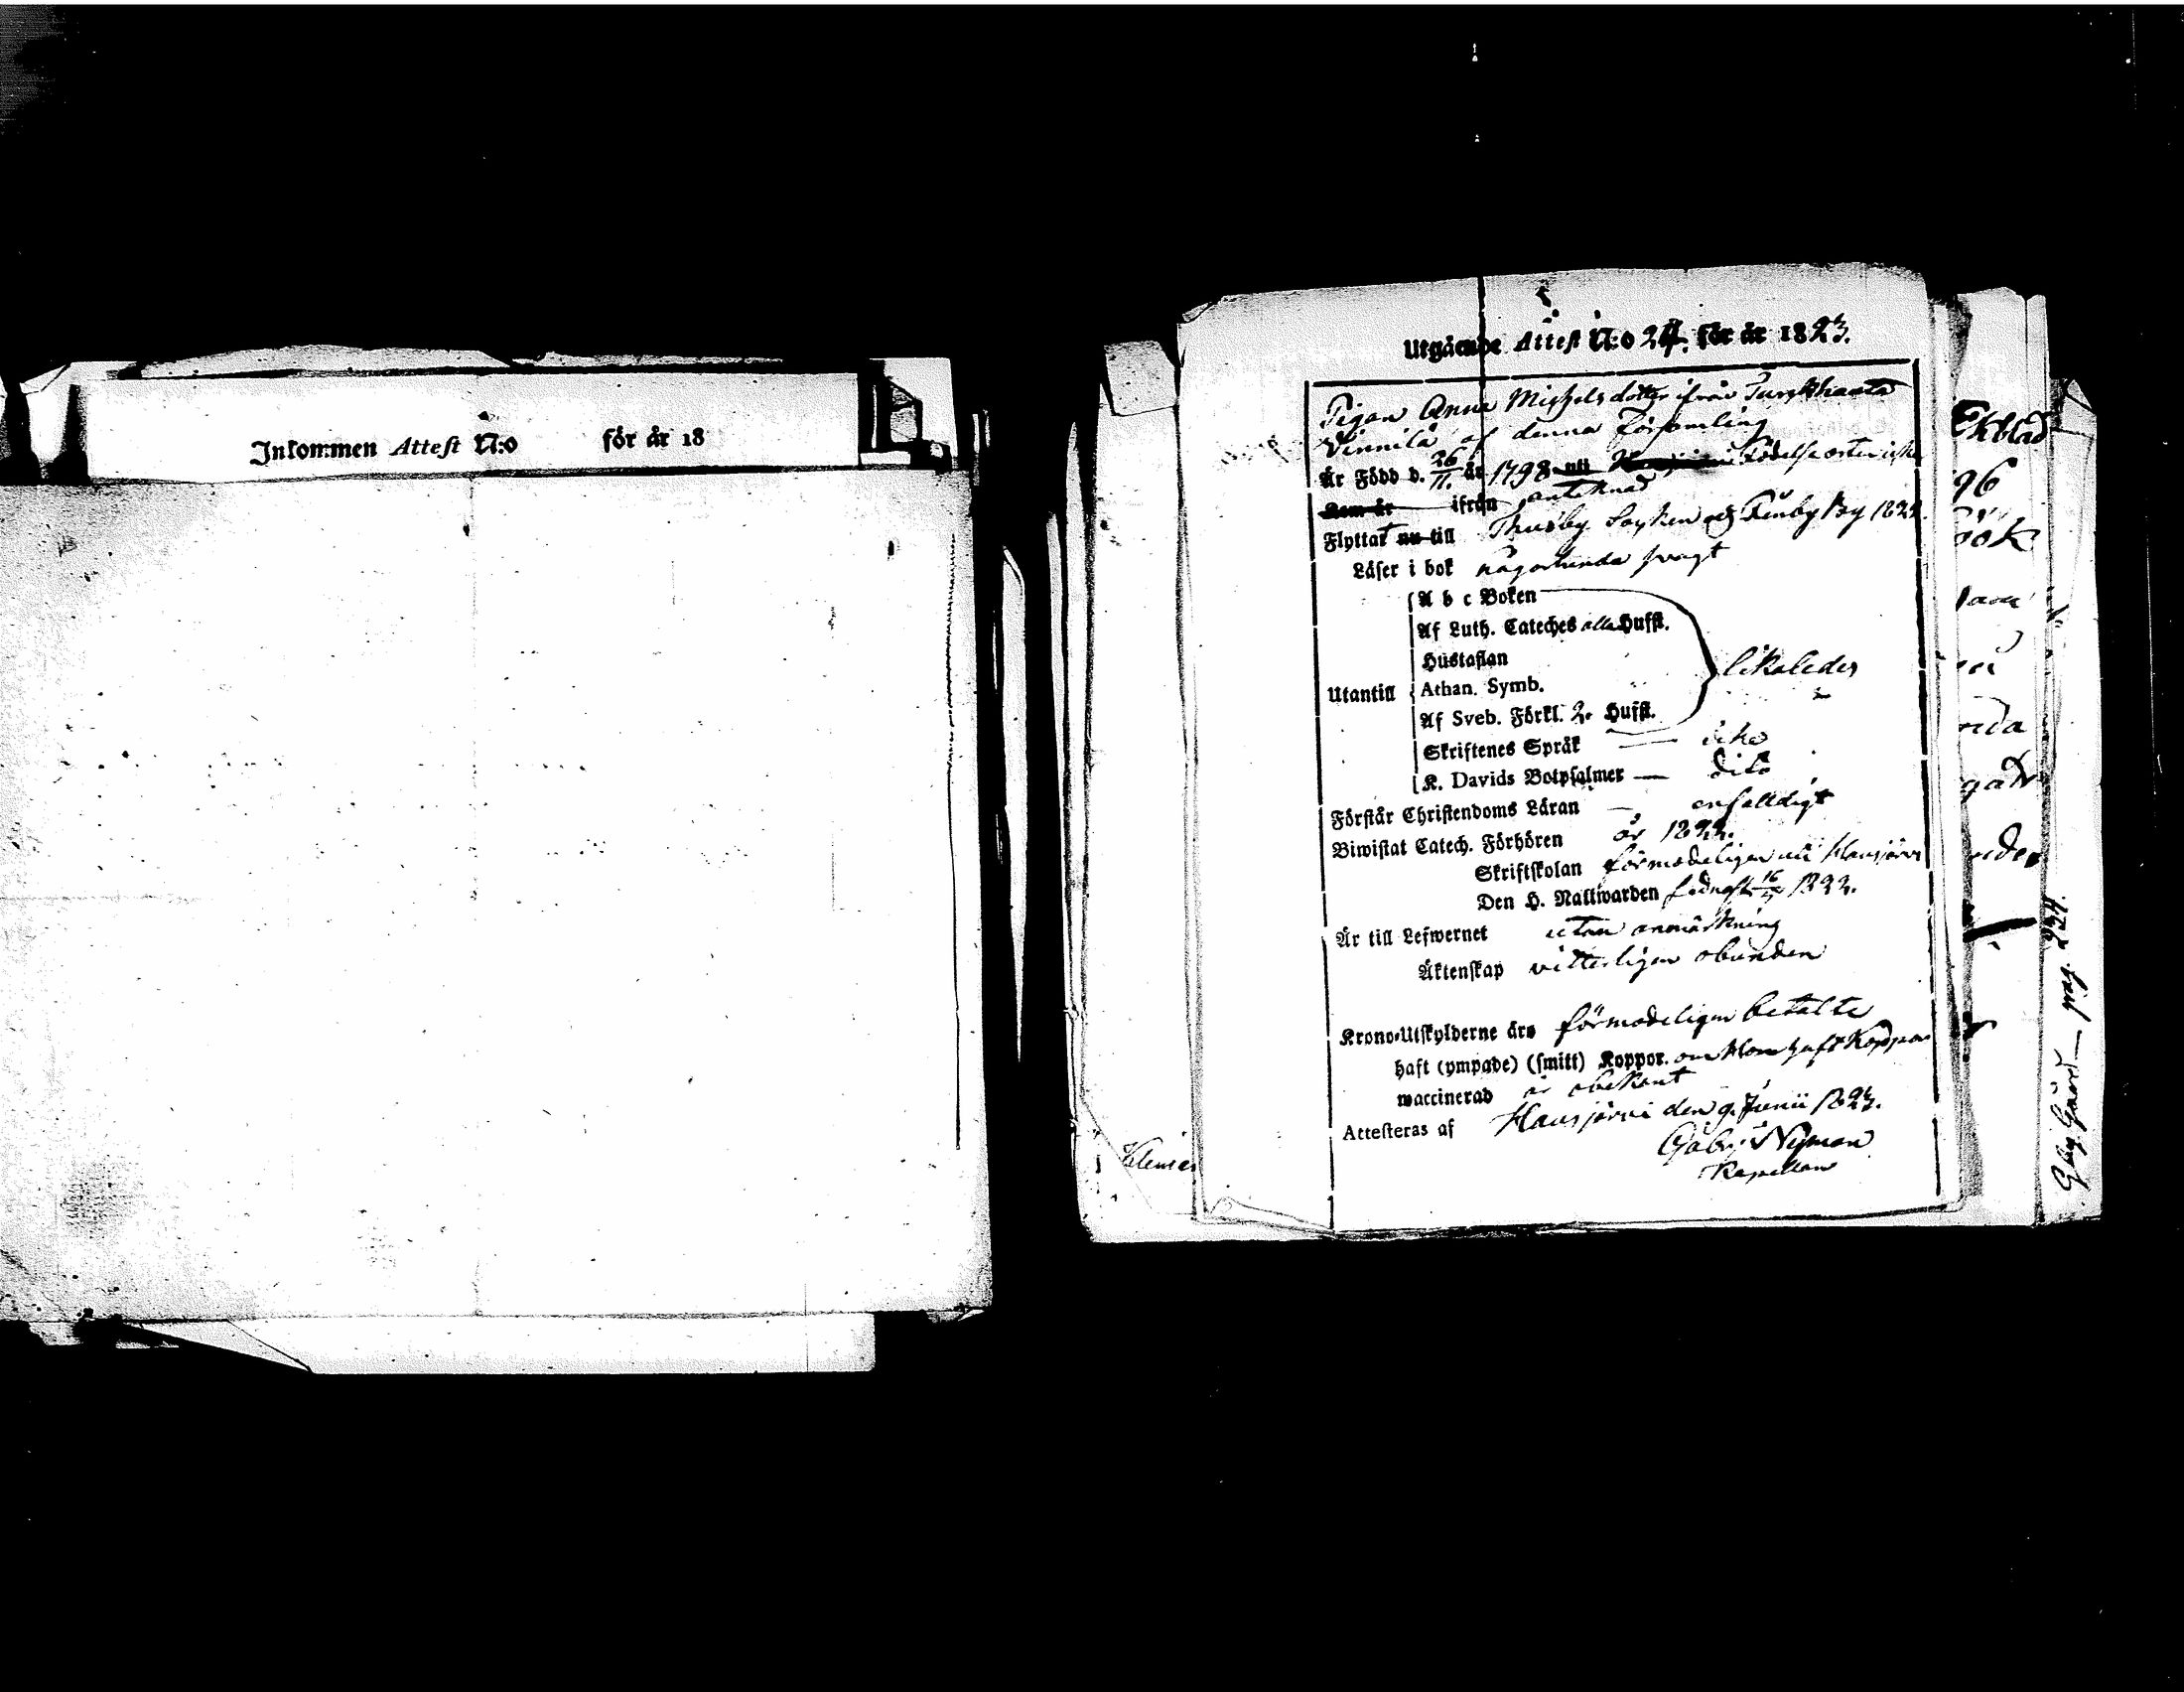 Inkommen Attest N:o för år 18
Utgående Attest N:o 24. för år 1823.
Pigan Anna Michelsdotter ifrån Turkhauta
Vinnilä af denna Församling
Är Född d. 26/11. år 1798 uti Födelseorten icke
Kom år ifrån antecknad
Flyttat nu till Thusby Socken och Finby By 1822.
Läser i bok någorlunda svagt
A b c Boken
Af Luth. Cateches alla Hufst.
Hustaflan
Utantill Athan. Symb. likaledes
Af Sveb. Förkl. 2. Hufst.
Skriftenes Språk — icke
K. Davids Botpsalmer — dito
Förstår Christendoms Läran — enfalldigt
Biwistat Catech. Förhören år 1822.
Skriftskolan förmodeligen uti Hausjärvi
Den H. Nattwarden sednast 1822.
Är till Lefwernet utan anmärkning
Äktenskap vitterligen obunden
Krono-Utskylderne äro förmodeligen betalte
haft (ympade) (smitt) Koppor. om Hon haft Koppor
waccinerad är obekant
Attesteras af Hausjärvi den 9. Junii 1823.
Gabr. Nyman
Kapellan
Ekblad
96
pag. 224.